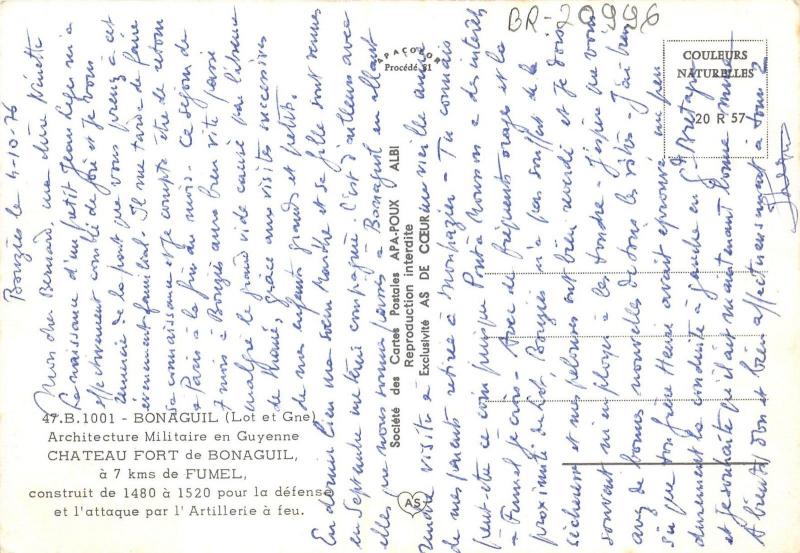 BR-20996
APA COLOR
Procédé 31
COULEURS
NATURELLES
20 R 57
Bouziès le 4-10-76
Mon cher Bernard, ma chère Ninette
La naissance d'un petit Jean Régis m'a
effectivement comblé de joie et je vous
remercie de la part que vous prenez à cet
événement familial. Il me tarde de faire
sa connaissance et je compte être de retour
à Paris à la fin du mois. Ce séjour de
7 mois à Bouziès aura bien vite passé
malgré le grand vide causé par l'absence
de grâce aux visites successives
de mes enfants grands et petits.
En dernier lieu ma soeur Marthe et sa fille sont venues
en Septembre me tenir compagnie. C'est d'ailleurs avec
elles que nous sommes passés à Bonaguil en allant
rendre visite à une vieille amie
de mes parents retirée à Monpazier - Tu connais
peut-être ce coin puisque Pont à Mousson a des intérêts
à Fumel je crois - Avec de fréquents orages et la
proximité du Lot, Bouziès n'a pas souffert de la
sécheresse et mes pelouses ont bien reverdi et je dois
souvent m'employer à les tondre - J'espère que vous
avez de bonnes nouvelles de tous les vôtres - J'ai bien
su que ton frère Henri avait éprouvé un peu
durement la conduite à gauche en Gde Bretagne
et je souhaite qu'il aille maintenant
A bientôt donc et bien affectueusement à tous 2
47.B.1001 - BONAGUIL (Lot et Gne)
Architecture Militaire en Guyenne
CHATEAU FORT de BONAGUIL,
à 7 kms de FUMEL,
construit de 1480 à 1520 pour la défense
et l'attaque par l'Artillerie à feu.
Société des Cartes Postales APA-POUX - ALBI
Reproduction interdite
Exclusivité AS DE CŒUR
AS